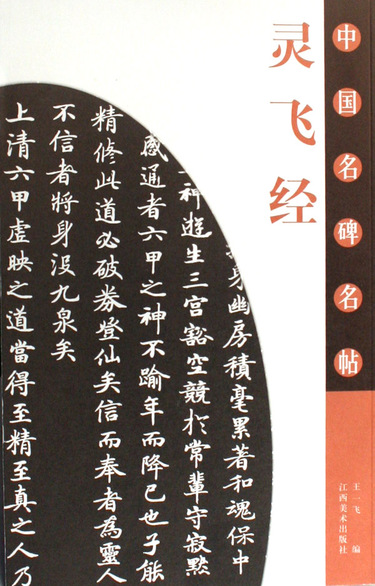 中国名碑名帖
灵飞经
王一飞 编
江西美术出版社
身幽房積毫累著和魂保中
神遊生三宮豁空競於常輩守寂默
感通者六甲之神不踰年而降已也子能
精修此道必破券登仙矣信而奉者為靈人
不信者將身没九泉矣
上清六甲虛映之道當得至精至真之人乃